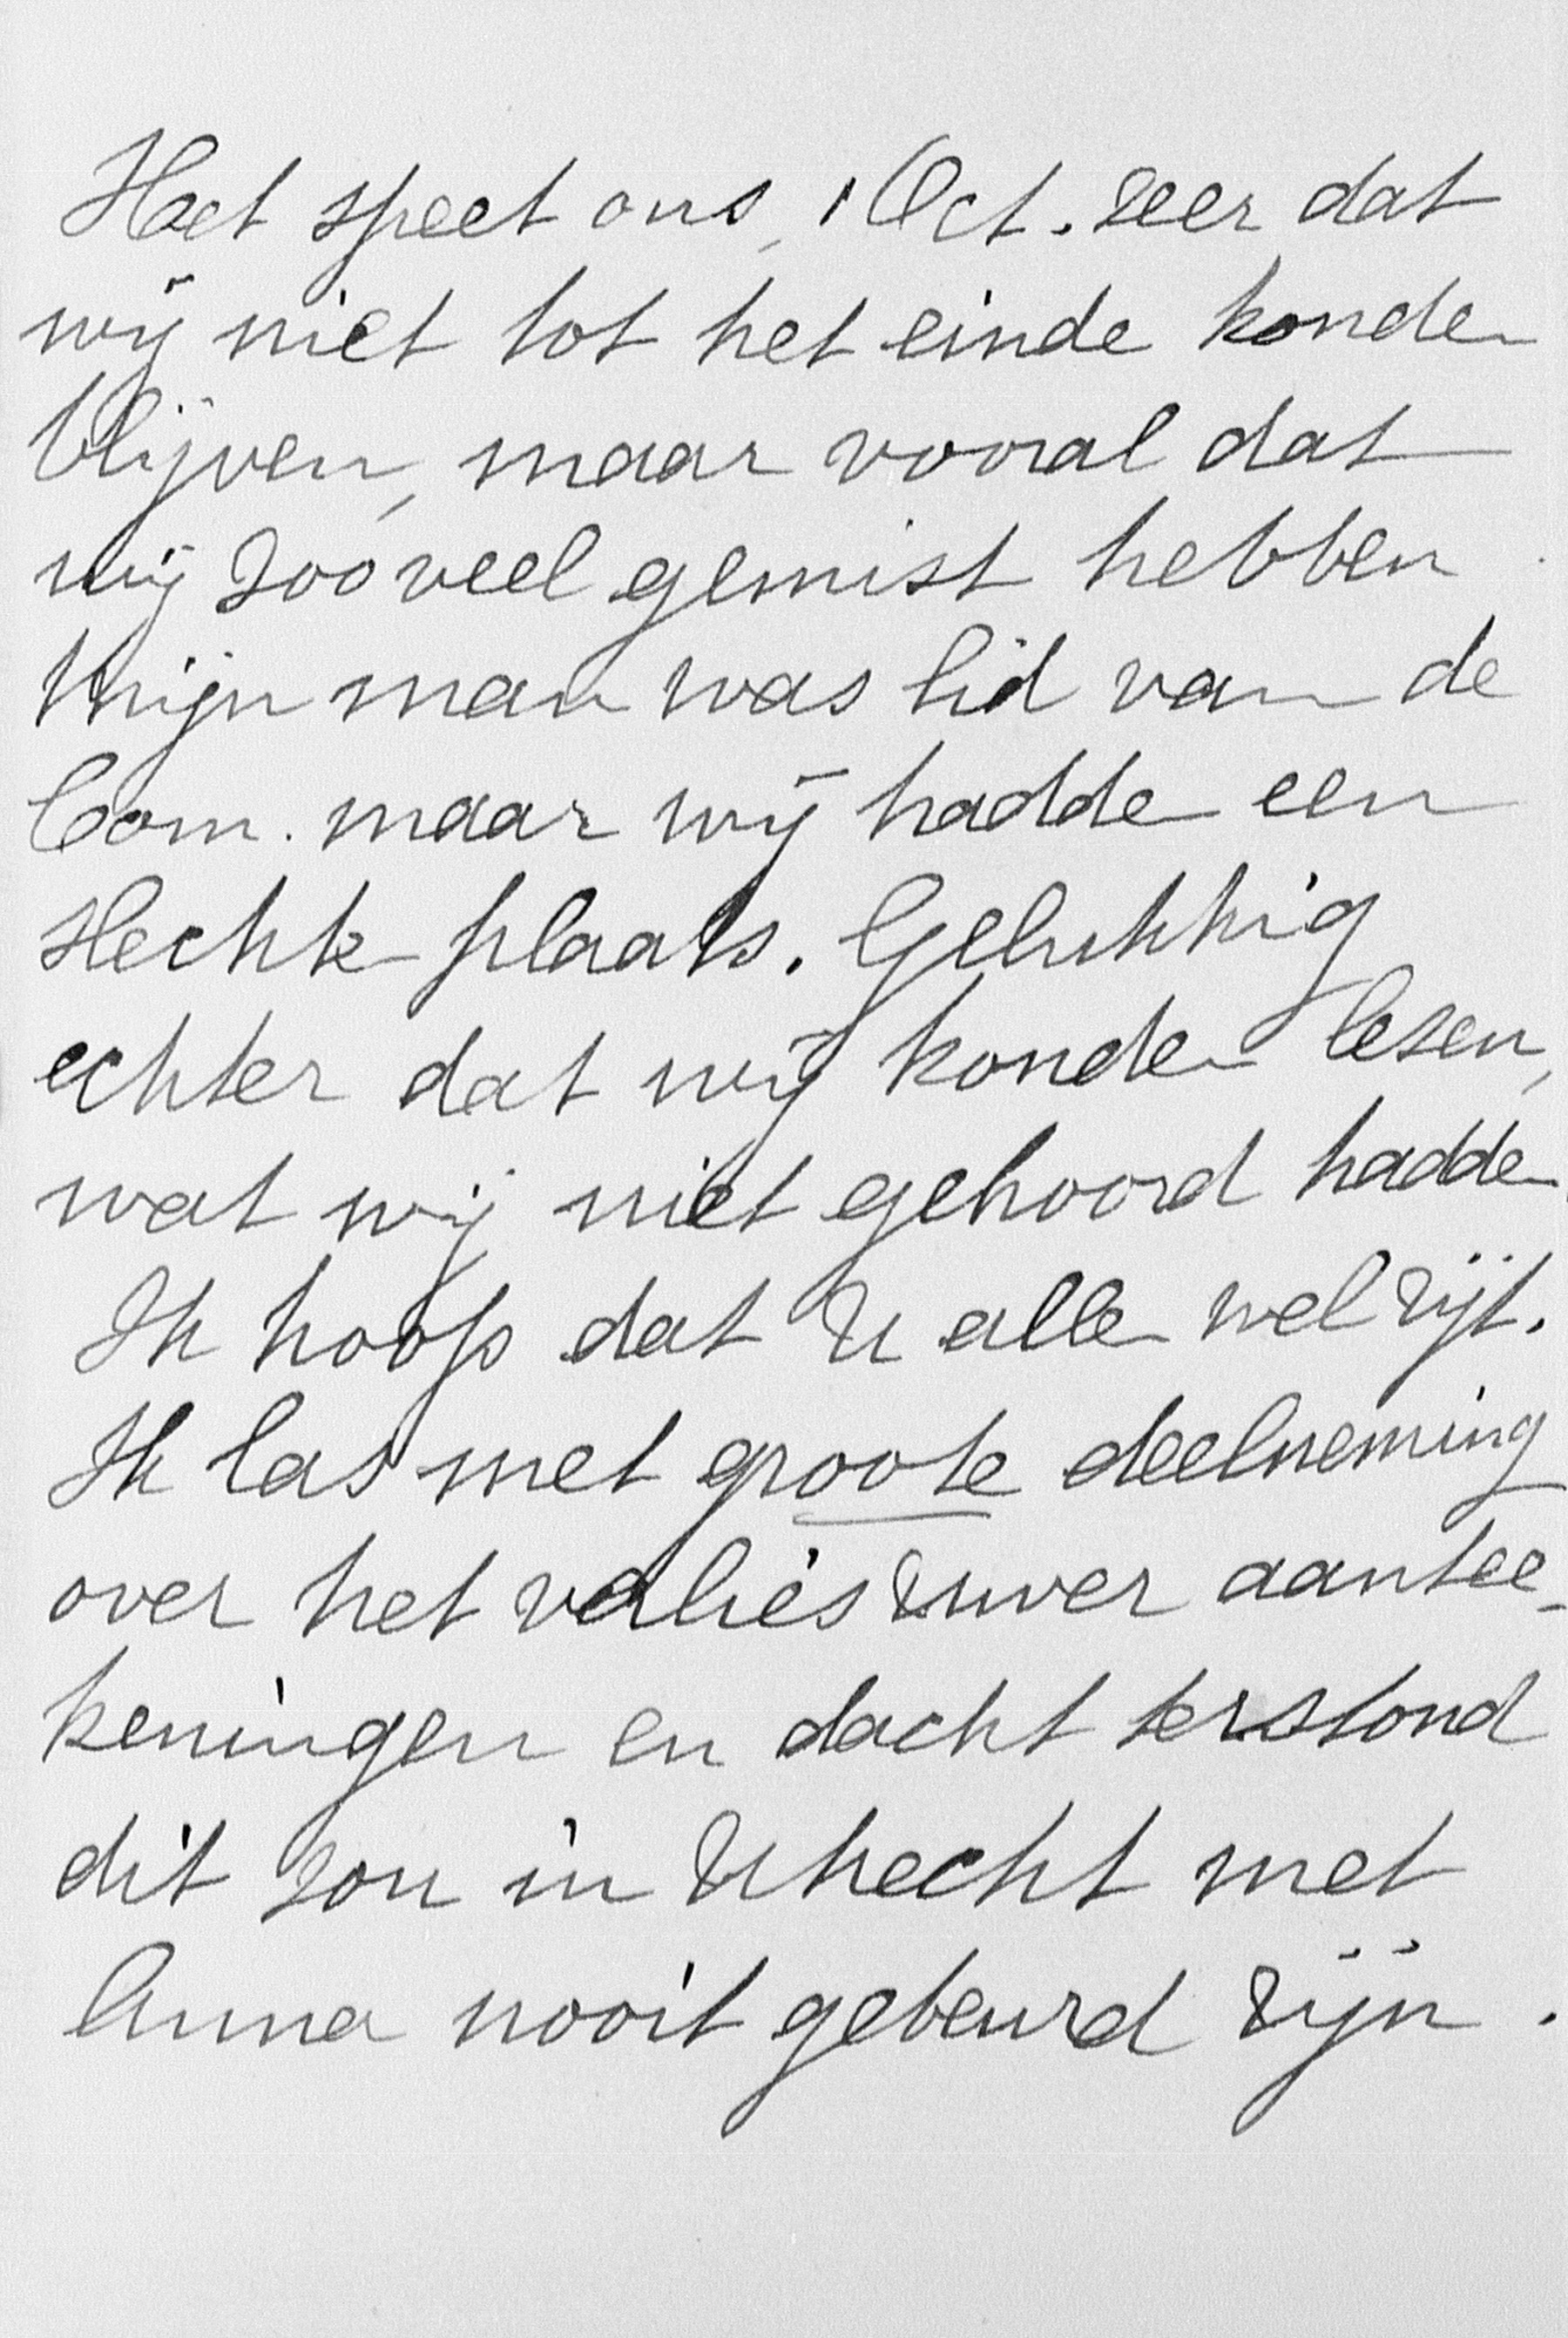 Het speet ons, 1 Oct. zeer dat
wij niet tot het einde konden
blijven, maar vooral dat
wij zooveel gemist hebben
Mijn man was lid van de
Com. maar wij hadden een
slechte plaats. Gelukkig
echter dat wij konden lezen,
wat wij niet gehoord hadden
Ik hoop dat U allen wel zijt.
Ik las met groote deelneming
over het verlies Uwer aantee-
keningen en dacht terstond
dit zou in Utrecht met
Anna nooit gebeurd zijn.